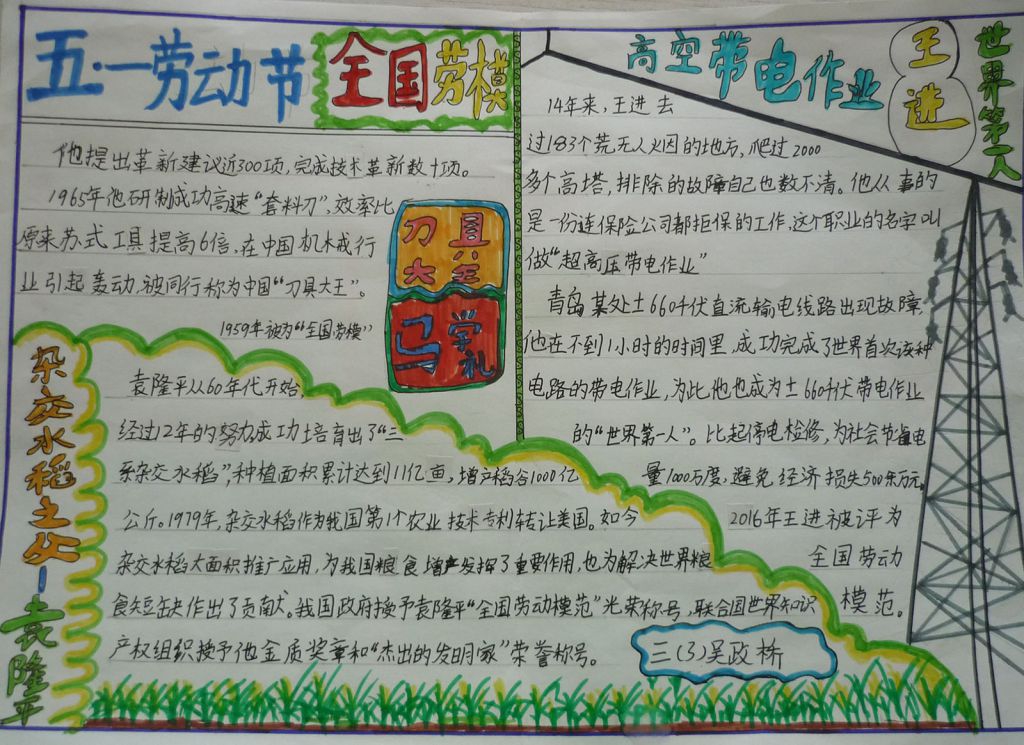 五·一劳动节 全国劳模
他提出革新建议近300项,完成技术革新数十项。
1965年他研制成功高速“套料刀”,效率比
原来苏式工具提高6倍,在中国机械行
业引起轰动,被同行称为中国“刀具大王”。
1959年被为“全国劳模”
刀具
大王
马学
礼
高空带电作业
王进
世界第一人
14年来,王进 去
过183个荒无人烟的地方,爬过2000
多个高塔,排除的故障自己也数不清。他从事的
是一份连保险公司都拒保的工作,这个职业的名字叫
做“超高压带电作业”
青岛某处±660千伏直流输电线路出现故障,
他在不到1小时的时间里,成功完成了世界首次该种
电路的带电作业,为此他也成为±660千伏带电作业
的“世界第一人”。比起停电检修,为社会节省电
量1000万度,避免经济损失500余万元。
2016年王进被评为
全国劳动
模范。
杂交水稻之父—袁隆平
袁隆平从60年代开始,
经过12年的努力成功培育出了“三
系杂交水稻”,种植面积累计达到11亿亩,增产稻谷1000亿
公斤。1979年,杂交水稻作为我国第1个农业技术专利转让美国。如今
杂交水稻大面积推广应用,为我国粮食增产发挥了重要作用,也为解决世界粮
食短缺作出了贡献。我国政府授予袁隆平“全国劳动模范”光荣称号,联合国世界知识
产权组织授予他金质奖章和“杰出的发明家”荣誉称号。
三(3)吴政桥